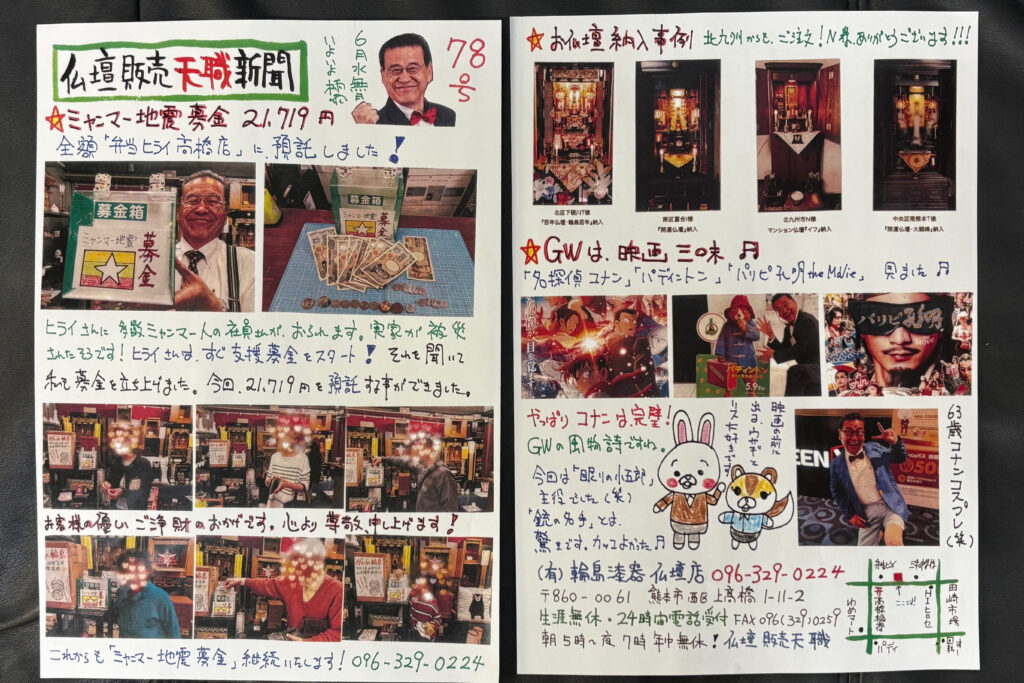 仏壇販売天職新聞
6月水無月
いよいよ梅雨
78号
☆ミャンマー地震募金 21,719円
全額「弁当ヒライ高橋店」に、預託しました!
募金箱
ミャンマー地震
募金
募金箱
ミャンマー地震
募金
ヒライさんに多数ミャンマー人の社員さんが、おられます。実家が被災
されたそうです!ヒライさんは、すぐ支援募金をスタート!それを聞いて
私も募金を立ち上げました。今回、21,719円を預託する事ができました。
お客様の優しいご浄財のおかげです。心より尊敬申し上げます!
これからも「ミャンマー地震募金」継続いたします!096-329-0224
☆お仏壇納入事例 北九州からも、ご注文!N様、ありがとうございます!!!
北区下硯川T様
『百年仏壇・輪島百年』納入
南区富合I様
『開運仏壇』納入
北九州市N様
マンション仏壇『イフ』納入
中央区南熊本T様
『開運仏壇・大観峰』納入
☆GWは、映画三昧♬
「名探偵コナン」「パディントン」「パリピ孔明 the Movie」見ました♬
パディントン
5.9
パリピ孔明
やっぱりコナンは、完璧!
GWの風物詩ですね。
今回は「眠りの小五郎」
主役でした(笑)
「銃の名手」とは、
驚きです。カッコよかった♬
映画の前に
出る、ウサギと
リス大好きです。
63歳コナンコスプレ(笑)
(有)輪島漆器仏壇店 096-329-0224
〒860-0061 熊本市西区上高橋1-11-2
生涯無休・24時間電話受付 FAX 096(329)0259
朝5時〜夜7時 年中無休!仏壇販売天職
ここです!
田崎市場